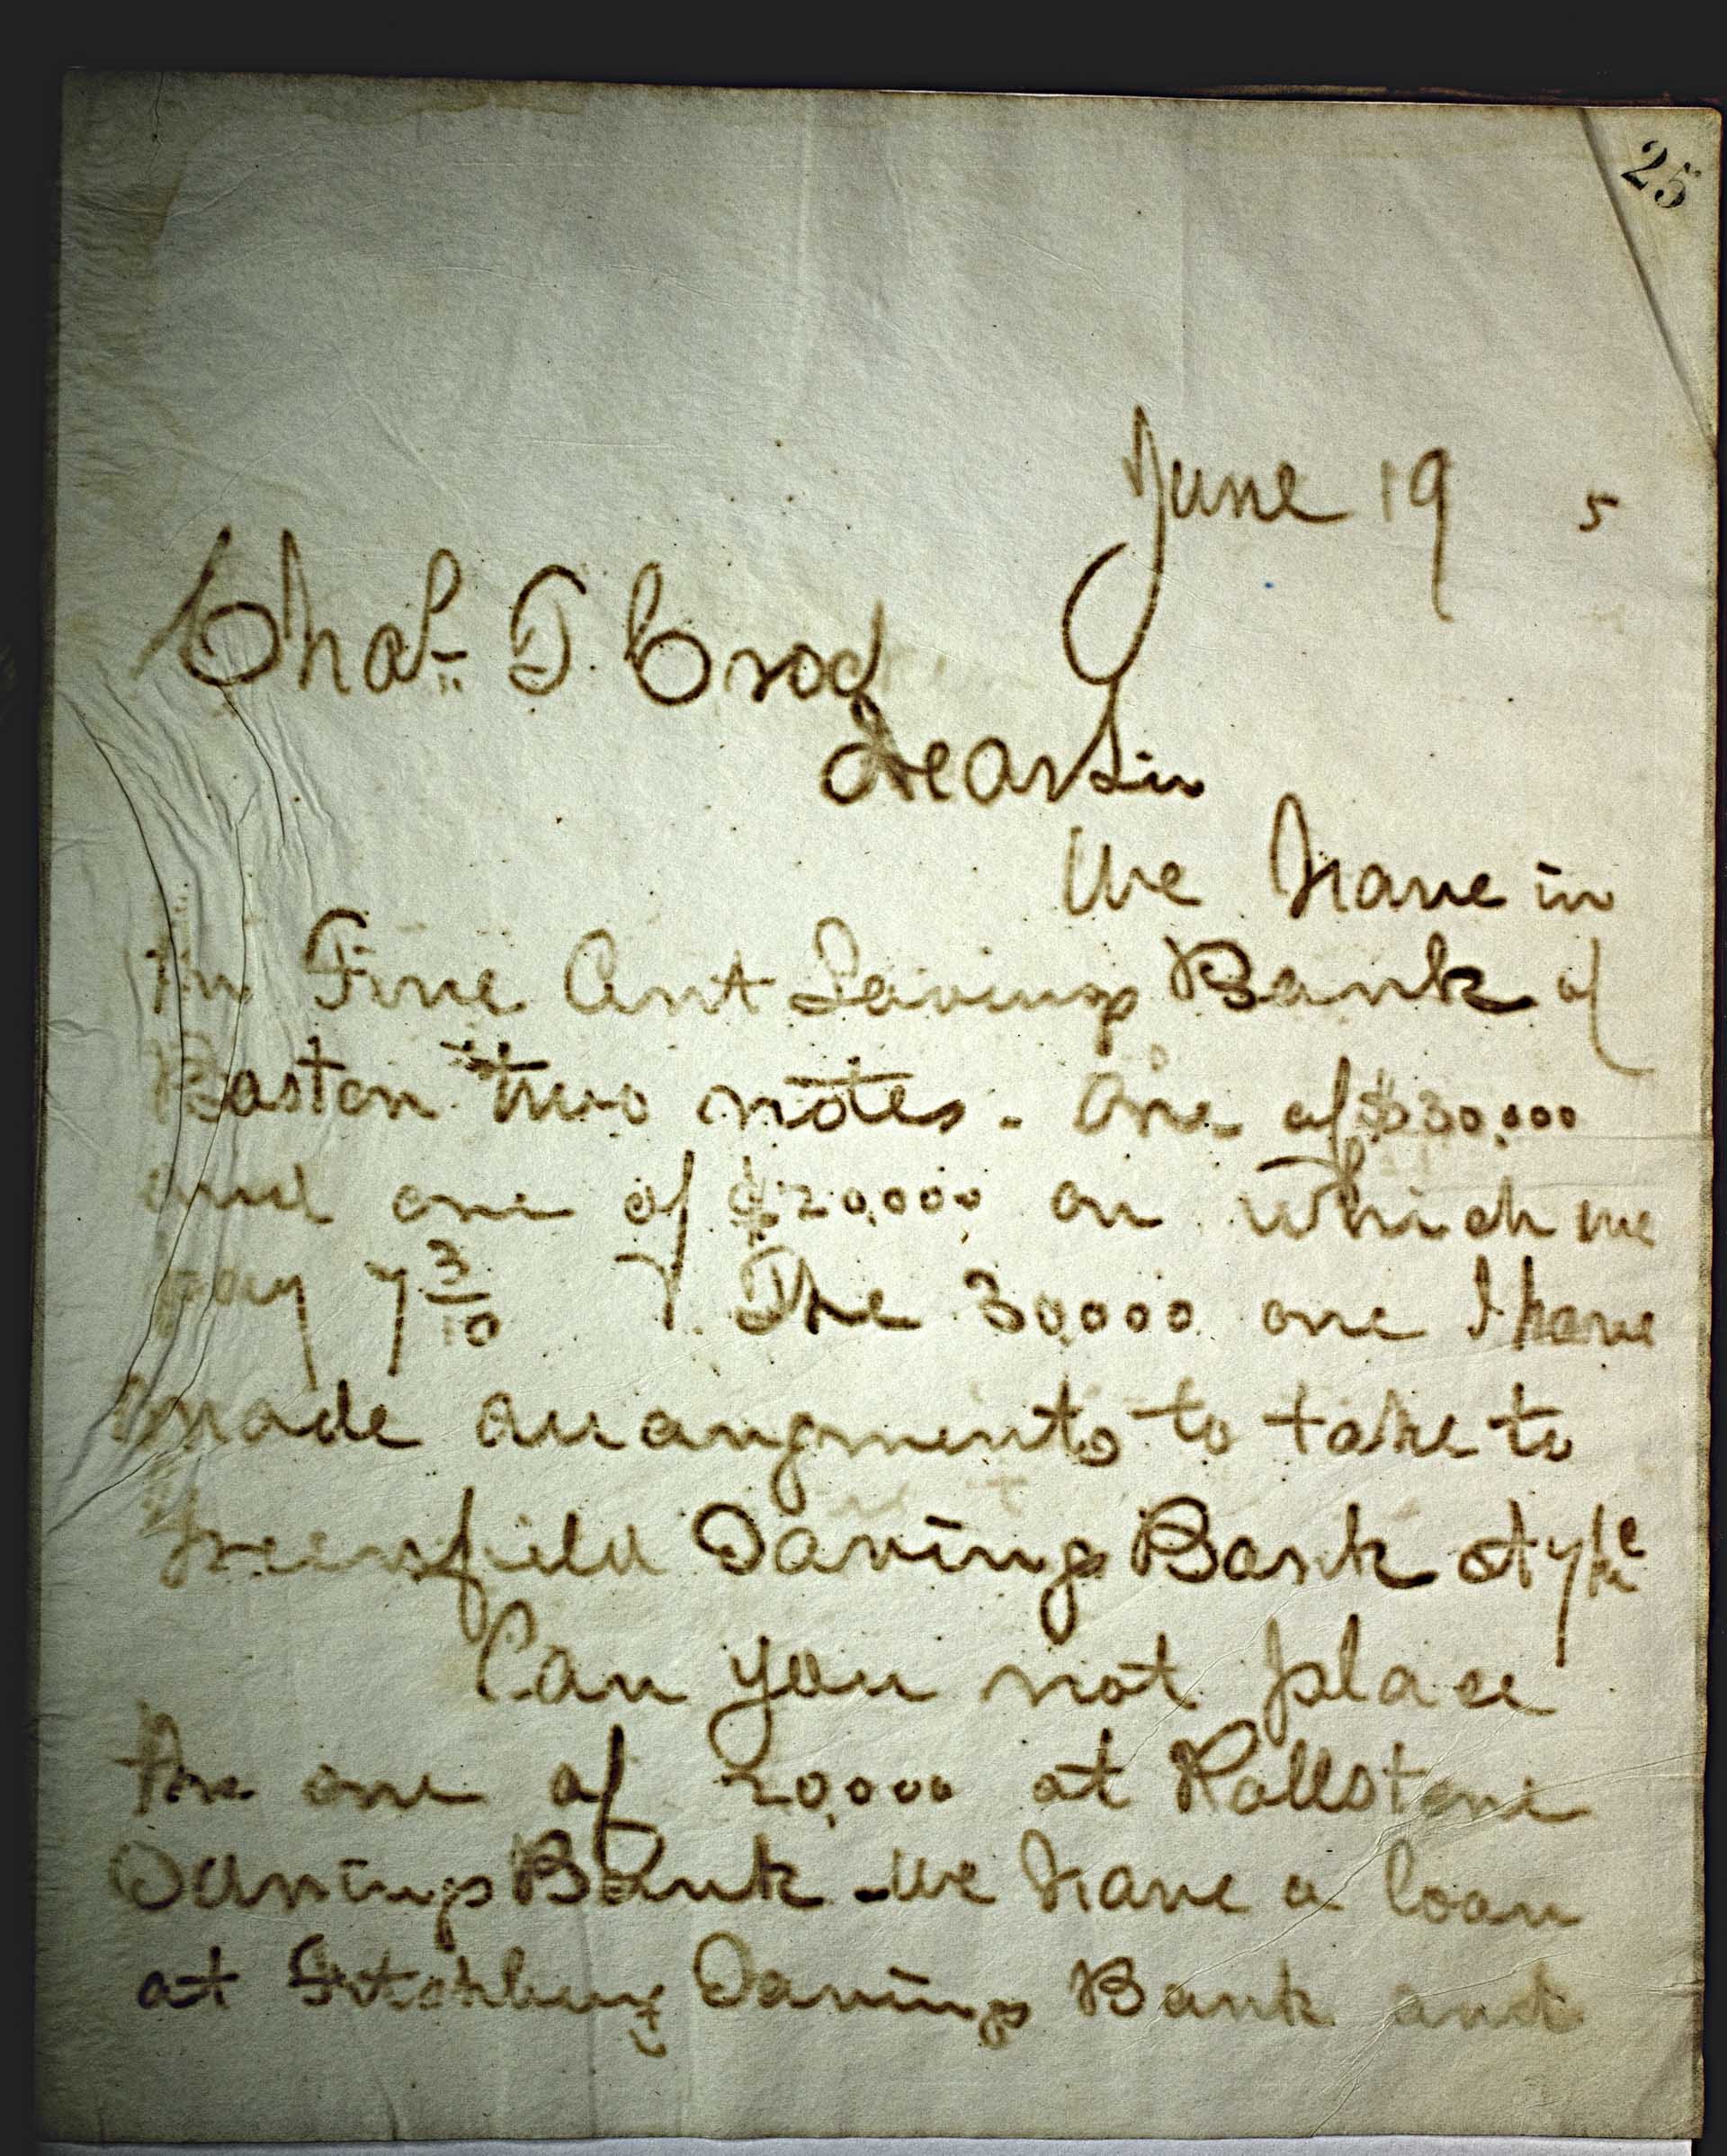 25
June 19 5
Chas. T. Croc
Dear Sir
We have in
the Five Cent Savings Bank of
Boston two notes. One of $30,000
and one of $20,000 on which we
pay 7 3/10 The 30,000 one I have
made arrangments to take to
Greenfield Savings Bank at 7
Can you not place
the one of 20,000 at Rollstone
Savings Bank - We have a loan
at Fitchburg Savings Bank and